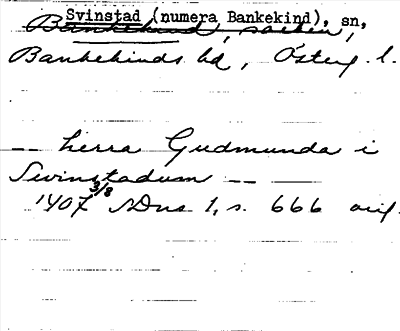 Svinstad (numera Bankekind), sn,
Bankekind, socken,
Bankekinds hd, Österg. l.
-- herra Gudmunda i
Swinstadum -- --
1407 3/8 SDns 1, s. 666 orig.